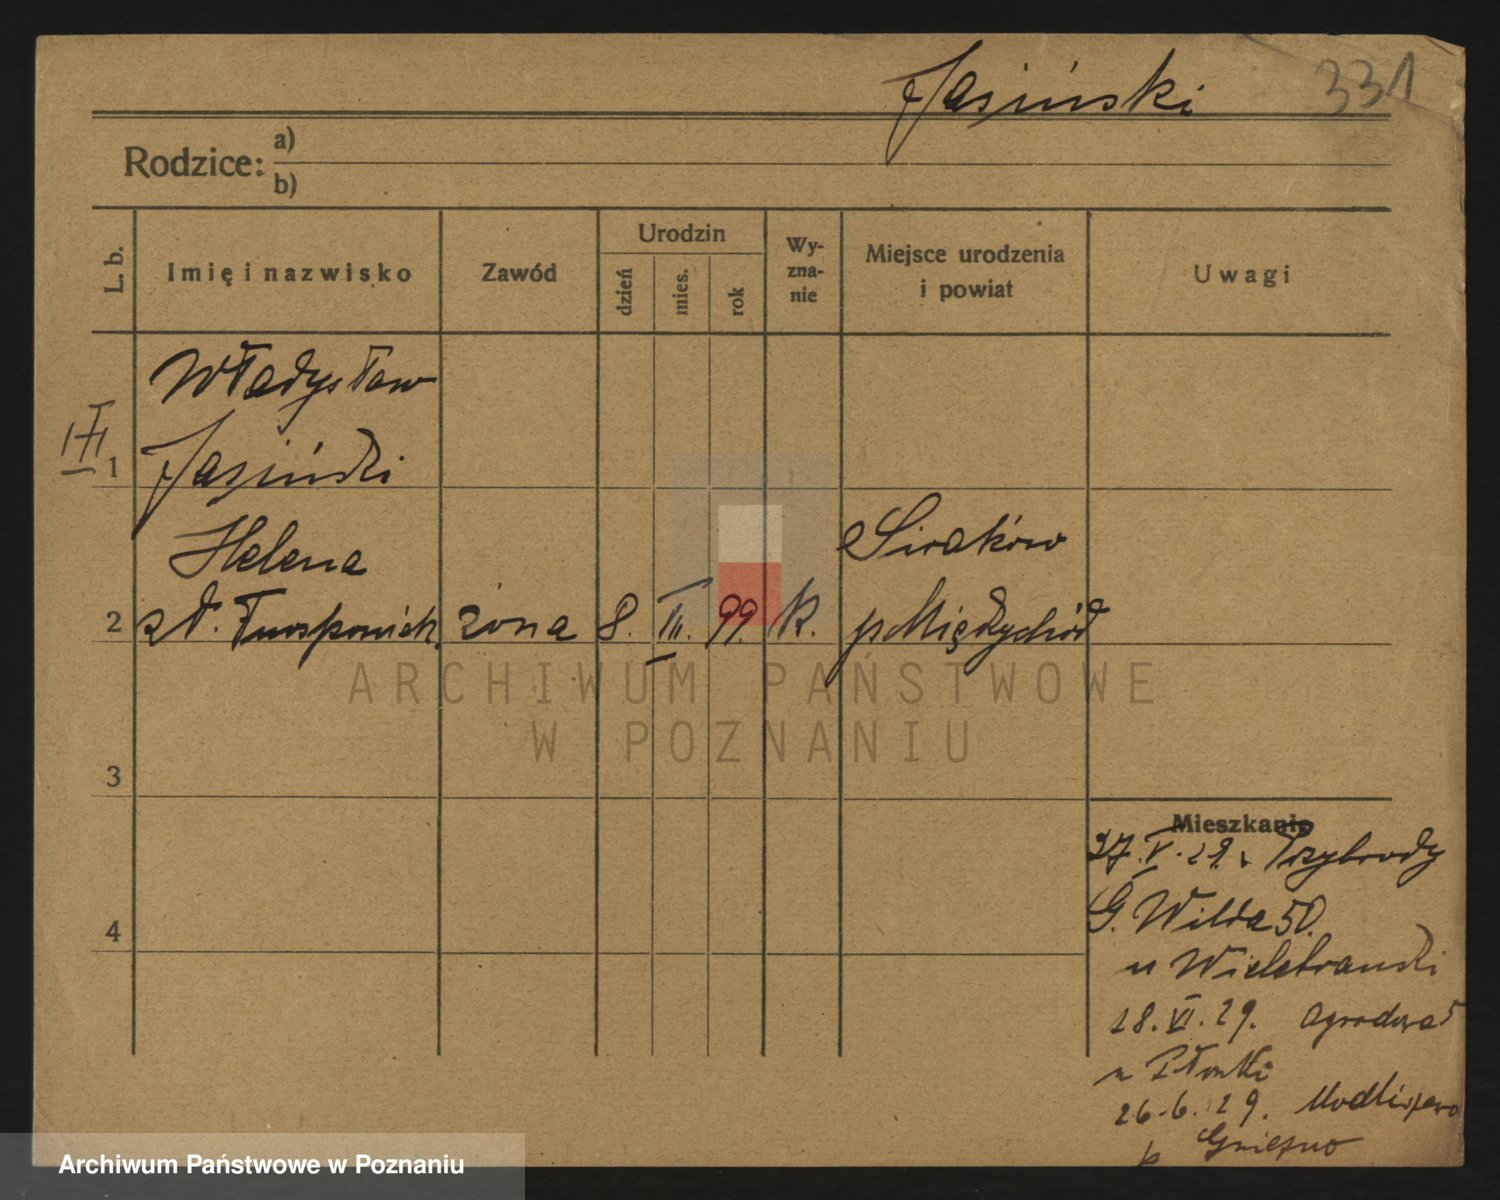 Jasiński 331
Rodzice: a)
b)
L. b.
Imię i nazwisko
Zawód
Urodzin
dzień
mies.
rok
Wy-
zna-
nie
Miejsce urodzenia
i powiat
Uwagi
Władysław
1 Jasiński
Helena Sieraków
2 żona 8. III. 99. k. p Międzychód
3
4
Mieszkanie
27. V. 29. z Przybrody
G. Wilda 50.
u
18. VI. 29. Ogrodowa 5
u
26. 6. 29. Modliszewo
p Gniezno
ARCHIWUM PAŃSTWOWE
W POZNANIU
Archiwum Państwowe w Poznaniu